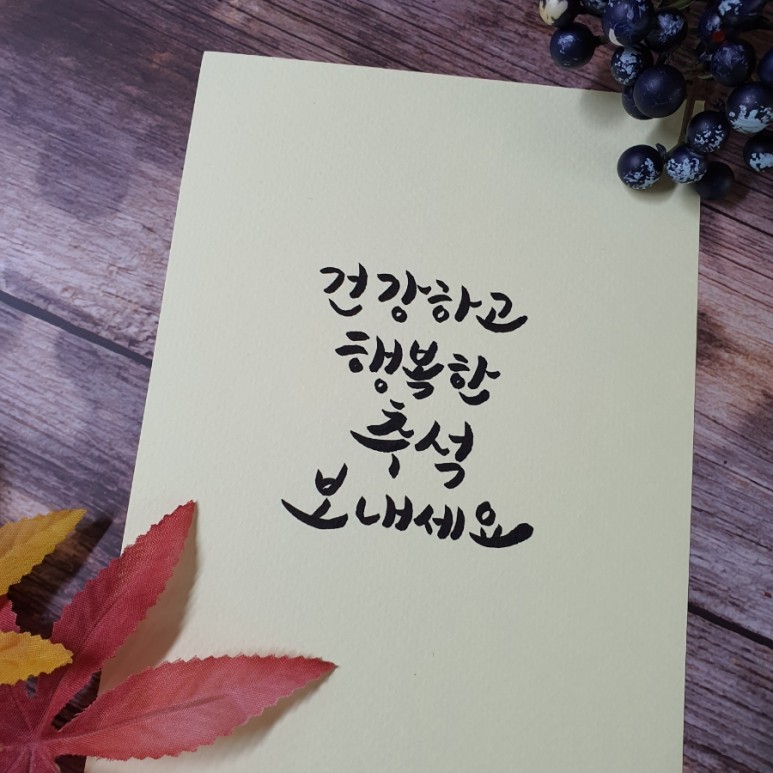 건강하고
행복한
추석
보내세요